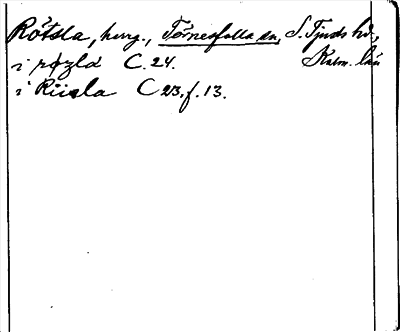 Rötsla, herrg., Törnesfalla sn, S. Tjusts hd,
i røzla C. 24. Kalm. län
i Riisla C 23, f. 13.